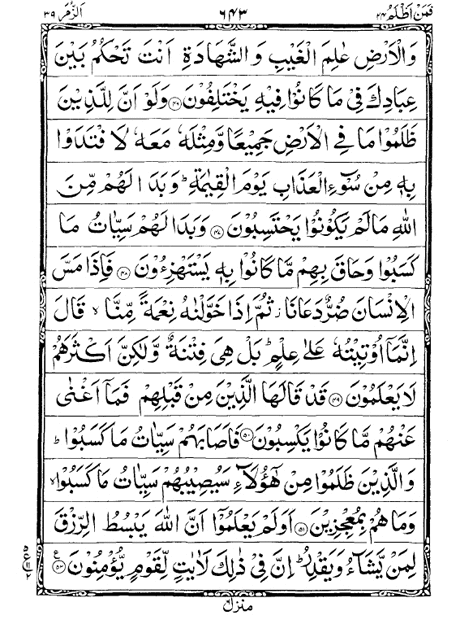 فَمَنۡ اَظۡلَمُ ٢٤ ٦٤٣ اَلزُّمَر ٣٩
وَالۡاَرۡضِ عٰلِمَ الۡغَيۡبِ وَالشَّهَادَةِ اَنۡتَ تَحۡكُمُ بَيۡنَ
عِبَادِكَ فِىۡ مَا كَانُوۡا فِيۡهِ يَخۡتَلِفُوۡنَ ﴿۴۶﴾ وَلَوۡ اَنَّ لِلَّذِيۡنَ
ظَلَمُوۡا مَا فِى الۡاَرۡضِ جَمِيۡعًا وَّمِثۡلَهٗ مَعَهٗ لَافۡتَدَوۡا
بِهٖ مِنۡ سُوۡٓءِ الۡعَذَابِ يَوۡمَ الۡقِيٰمَةِ ؕ وَبَدَا لَهُمۡ مِّنَ
اللّٰهِ مَا لَمۡ يَكُوۡنُوۡا يَحۡتَسِبُوۡنَ ﴿۴۷﴾ وَبَدَا لَهُمۡ سَيِّاٰتُ مَا
كَسَبُوۡا وَحَاقَ بِهِمۡ مَّا كَانُوۡا بِهٖ يَسۡتَهۡزِءُوۡنَ ﴿۴۸﴾ فَاِذَا مَسَّ
الۡاِنۡسَانَ ضُرٌّ دَعَانَا ثُمَّ اِذَا خَوَّلۡنٰهُ نِعۡمَةً مِّنَّا ۙ قَالَ
اِنَّمَاۤ اُوۡتِيۡتُهٗ عَلٰى عِلۡمٍ ؕ بَلۡ هِىَ فِتۡنَةٌ وَّلٰكِنَّ اَكۡثَرَهُمۡ
لَا يَعۡلَمُوۡنَ ﴿۴۹﴾ قَدۡ قَالَهَا الَّذِيۡنَ مِنۡ قَبۡلِهِمۡ فَمَاۤ اَغۡنٰى
عَنۡهُمۡ مَّا كَانُوۡا يَكۡسِبُوۡنَ ﴿۵۰﴾ فَاَصَابَهُمۡ سَيِّاٰتُ مَا كَسَبُوۡا ؕ
وَالَّذِيۡنَ ظَلَمُوۡا مِنۡ هٰٓؤُلَاۤءِ سَيُصِيۡبُهُمۡ سَيِّاٰتُ مَا كَسَبُوۡا ۙ
وَمَا هُمۡ بِمُعۡجِزِيۡنَ ﴿۵۱﴾ اَوَلَمۡ يَعۡلَمُوۡۤا اَنَّ اللّٰهَ يَبۡسُطُ الرِّزۡقَ
لِمَنۡ يَّشَآءُ وَيَقۡدِرُ ؕ اِنَّ فِىۡ ذٰلِكَ لَاٰيٰتٍ لِّقَوۡمٍ يُّؤۡمِنُوۡنَ ﴿۵۲﴾ ع
منزل